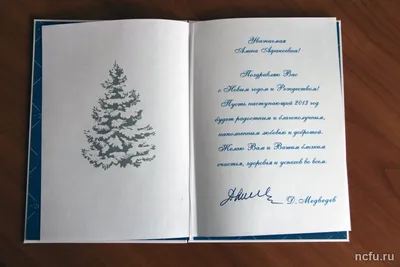 Уважаемая
Алина Аджиевна!
Поздравляю Вас
с Новым годом и Рождеством!
Пусть наступающий 2013 год
будет радостным и благополучным,
наполненным любовью и добротой.
Желаю Вам и Вашим близким
счастья, здоровья и успехов во всем.
Д. Медведев
ncfu.ru